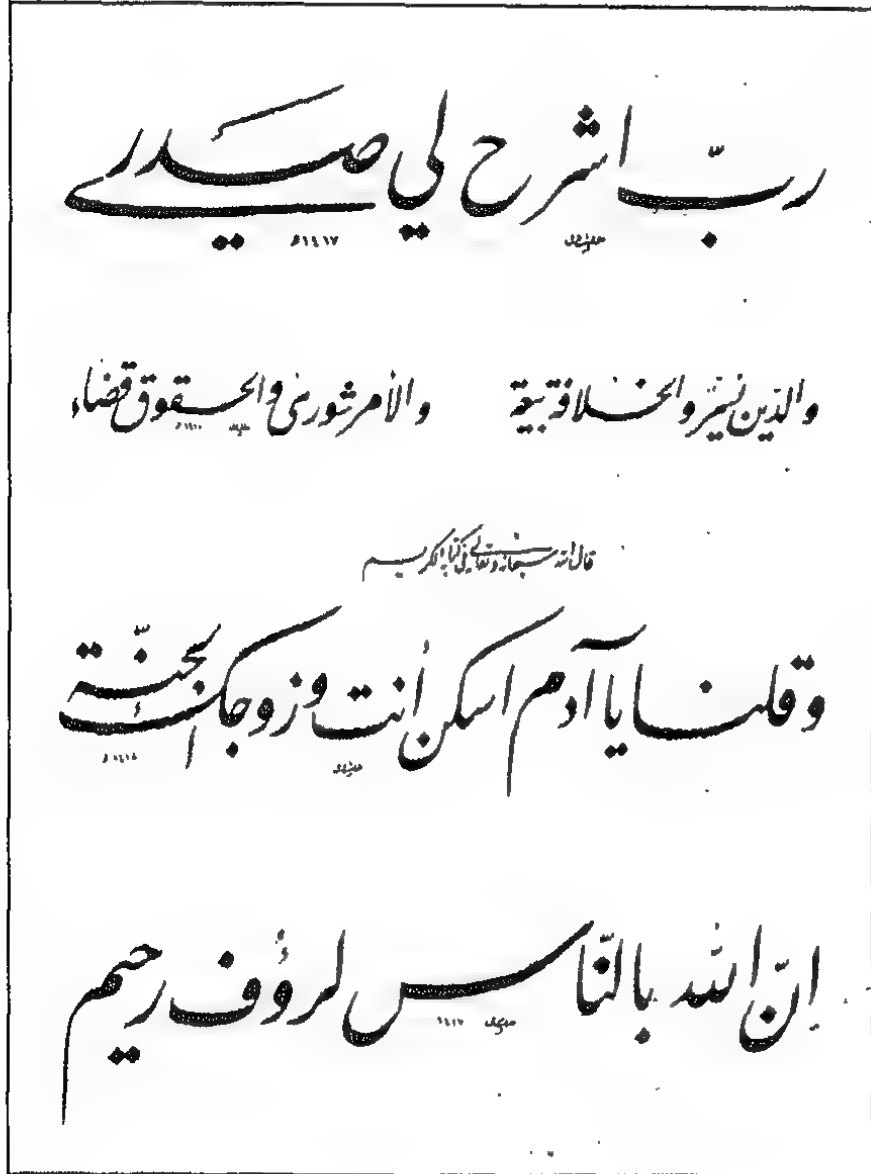 ربّ اشرح لي صدري
١٤١٧هـ
والدّين يُسرٌ والخلافة بيعة والأمر شورى والحقوق قضاء
قال الله سبحانه وتعالى في كتابه الكريم
وقلنا يا آدم اسكن أنت وزوجك الجنّة
١٤١٨هـ
إنّ الله بالنّاس لرؤف رحيم
١٤١٧